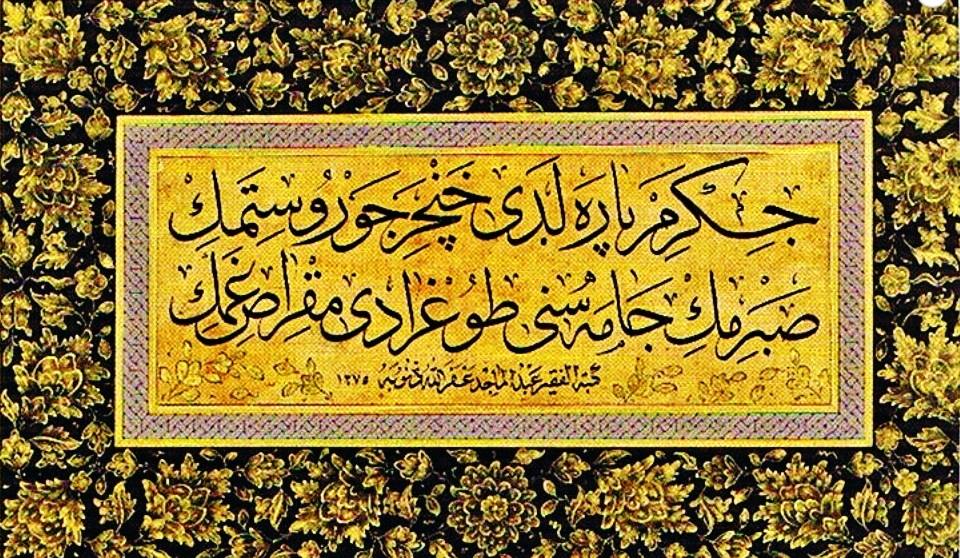 جكرم پاره لدى خنجر جور و ستمك
صبرمك جامه سنى طوغرادى مقراض غمك
كتبه الفقير عبد الماجد غفر الله ذنوبه ١٢٧٥